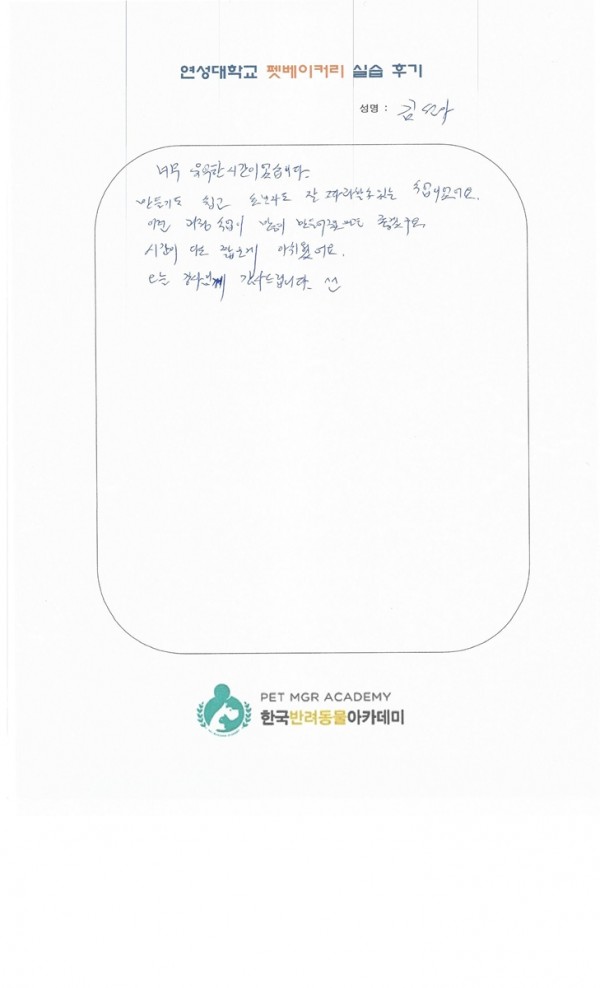 연성대학교 펫베이커리 실습 후기
성명 : 김선아
너무 유익한 시간이였습니다.
만들기도 쉽고 초보자도 잘 따라할수있는 수업이였어요.
이런 과정 수업이 많이 만들어졌으면 좋겠구요.
시간이 다소 짧은게 아쉬웠어요.
오늘 강사님께 감사드립니다.
PET MGR ACADEMY
한국반려동물아카데미